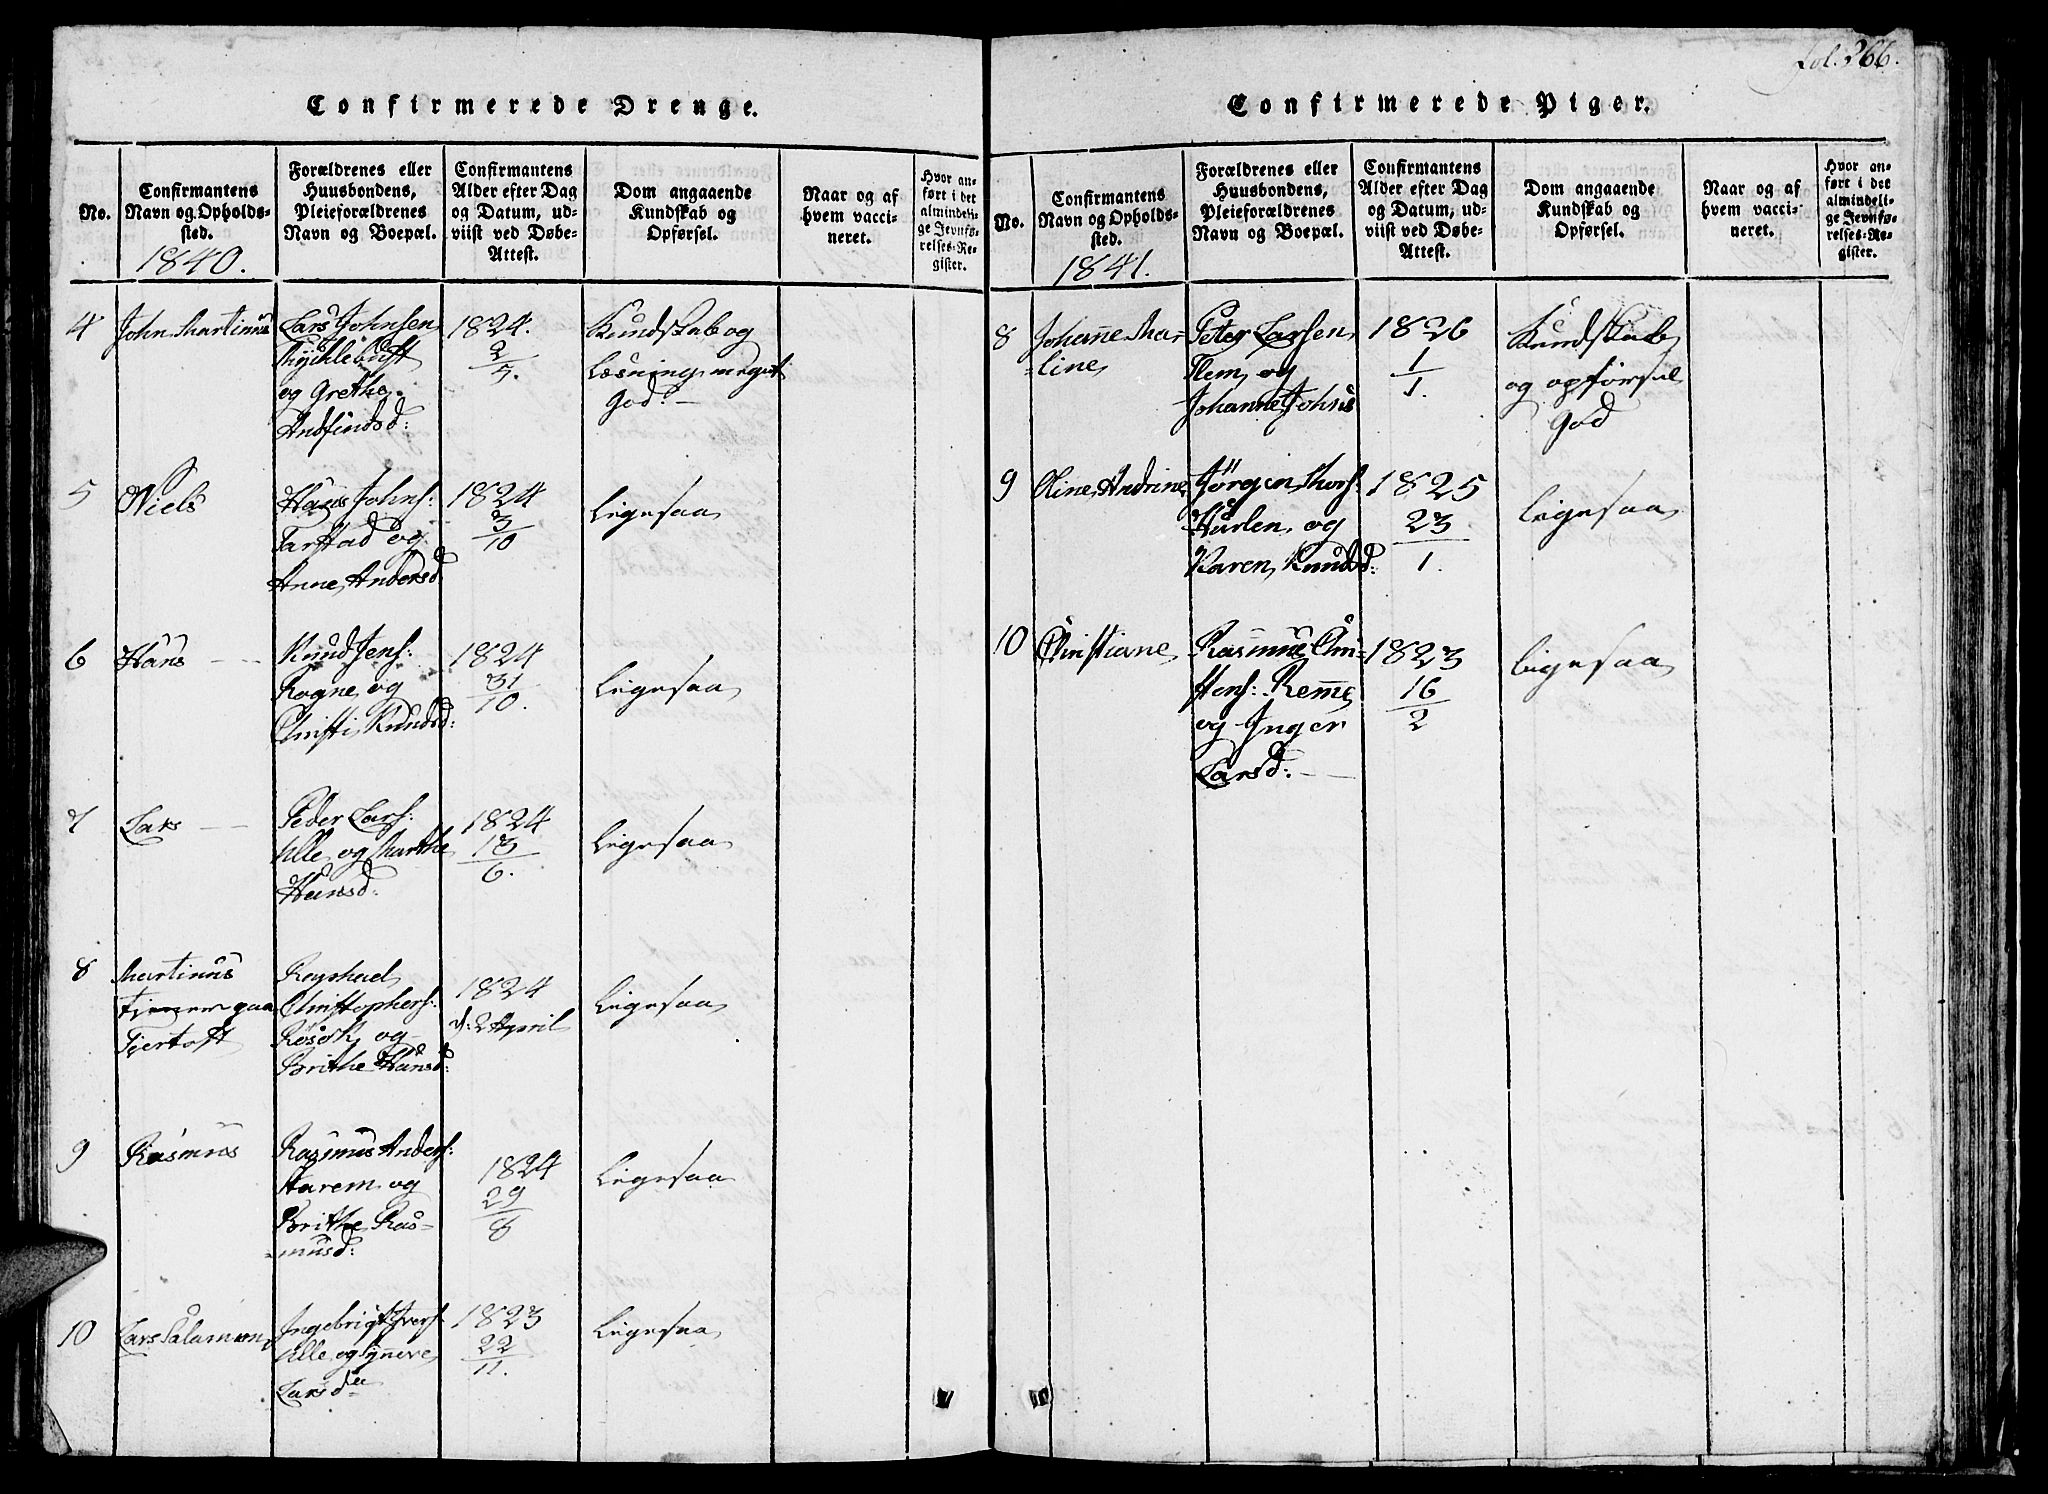 Fol. 266.
Confirmerede Drenge.
No.
Confirmantens
Navn og Opholds-
sted.
1840.
Forældrenes eller
Huusbondens,
Pleieforældrenes
Navn og Boepæl.
Confirmantens
Alder efter Dag
og Datum, ud-
viist ved Døbe-
Attest.
Dom angaaende
Kundskab og
Opførsel.
Naar og af
hvem vacci-
neret.
Hvor an-
ført i det
almindeli-
ge Jevnfø-
relses-Re-
gister.
4
John Martinus
Lars Johnsen
Myhlebust
og Grethe
Andfindsd:
1824.
2
5.
Kundskab og
Læsning meget
God. —
5
Niels
Hans Johns:
Farstad og
Anne Andersd
1824
3
10
Ligesaa
6
Hans —
Knud Jens:
Rogne og
Christi Knudsd:
1824
31
10.
Ligesaa
7
Lars —
Peder Lars:
Ulle og Marthe
Hansd:
1824
13
6.
Ligesaa
8
Martinus
tjenner paa
Fjertoft
Christophers:
Røsok og
Brithe Hansd:
1824
d: 2 April
Ligesaa
9
Rasmus
Rasmus Anders:
Harem og
Brithe Ras-
-musd:
1824
29
8
Ligesaa
10
Lars Salamon
Ingebrigt Ivers:
Ulle og Synneve
Larsd
1823
22
11.
Ligesaa
Confirmerede Piger.
No.
Confirmantens
Navn og Opholds-
sted.
1841.
Forældrenes eller
Huusbondens,
Pleieforældrenes
Navn og Boepæl.
Confirmantens
Alder efter Dag
og Datum, ud-
viist ved Døbe-
Attest.
Dom angaaende
Kundskab og
Opførsel.
Naar og af
hvem vacci-
neret.
Hvor an-
ført i det
almindeli-
ge Jevnfø-
relses-Re-
gister.
8
Johan̅e Ma-
-line
Peter Larsen
Flem og
Johanne Johns
1826
1
1.
Kundskab
og opførsel
God
9
Oline Andrine
Jørgen Thors:
Hurlen og
Karen Knudsd:
1825
23
1.
Ligesaa
10
Christiane
Rasmus Chri-
stens: Rem̅e
og Inger
Larsd: —
1823
16
2
Ligesaa